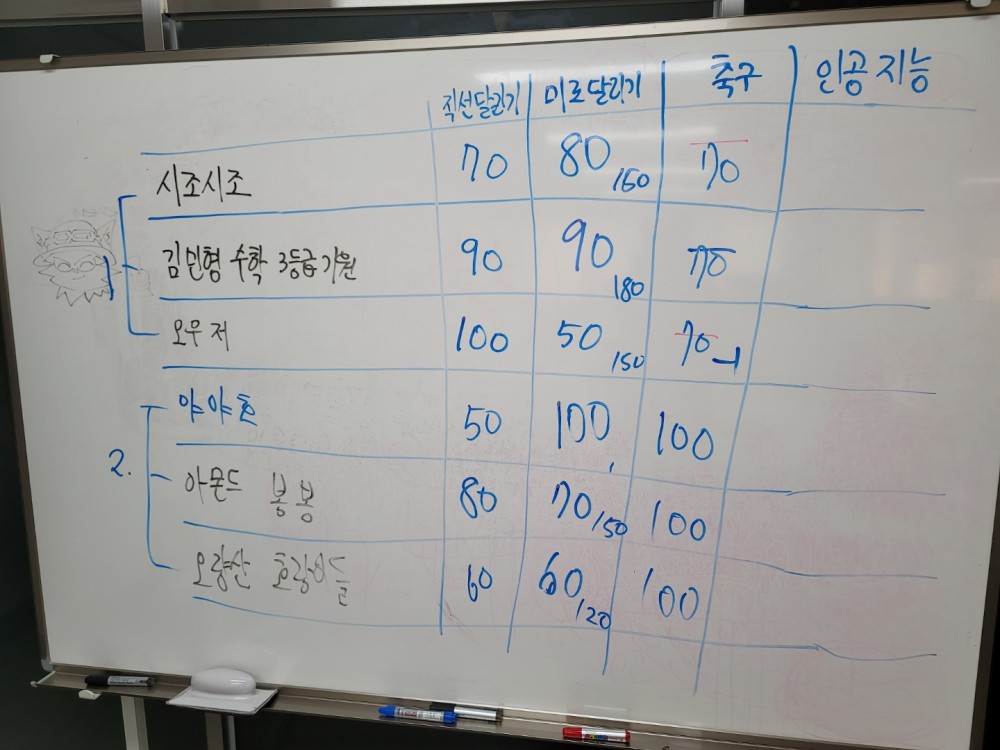 직선달리기 미로달리기 축구 인공지능
시조시조 70 80 /160 70
김민형 수학 3등급 기원 90 90 180 70
오우 저 100 50 /150 70
야야호 50 100 100
2.
아몬드 봉봉 80 70 /150 100
오량산 호랑이들 60 60 /120 100